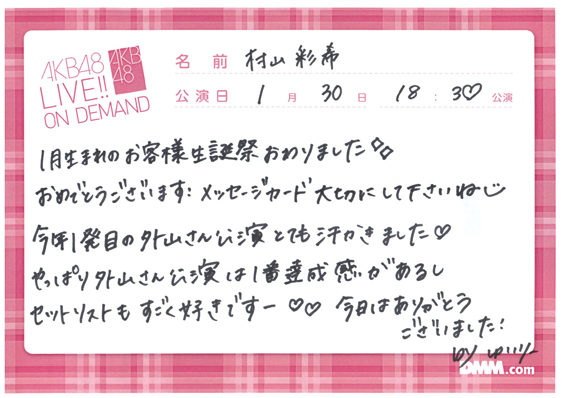 AKB48
LIVE!!
ON DEMAND
AKB
48
名前 村山彩希
公演日 1月30日 18:30公演
1月生まれのお客様生誕祭おわりました
おめでとうございます! メッセージカード大切にして下さいね
今年1発目の外山さん公演とても汗かきました♡
やっぱり外山さん公演は1番達成感があるし
セットリストもすごく好きですー♡♡ 今日はありがとう
ございました!
by ゆいりー
DMM.com